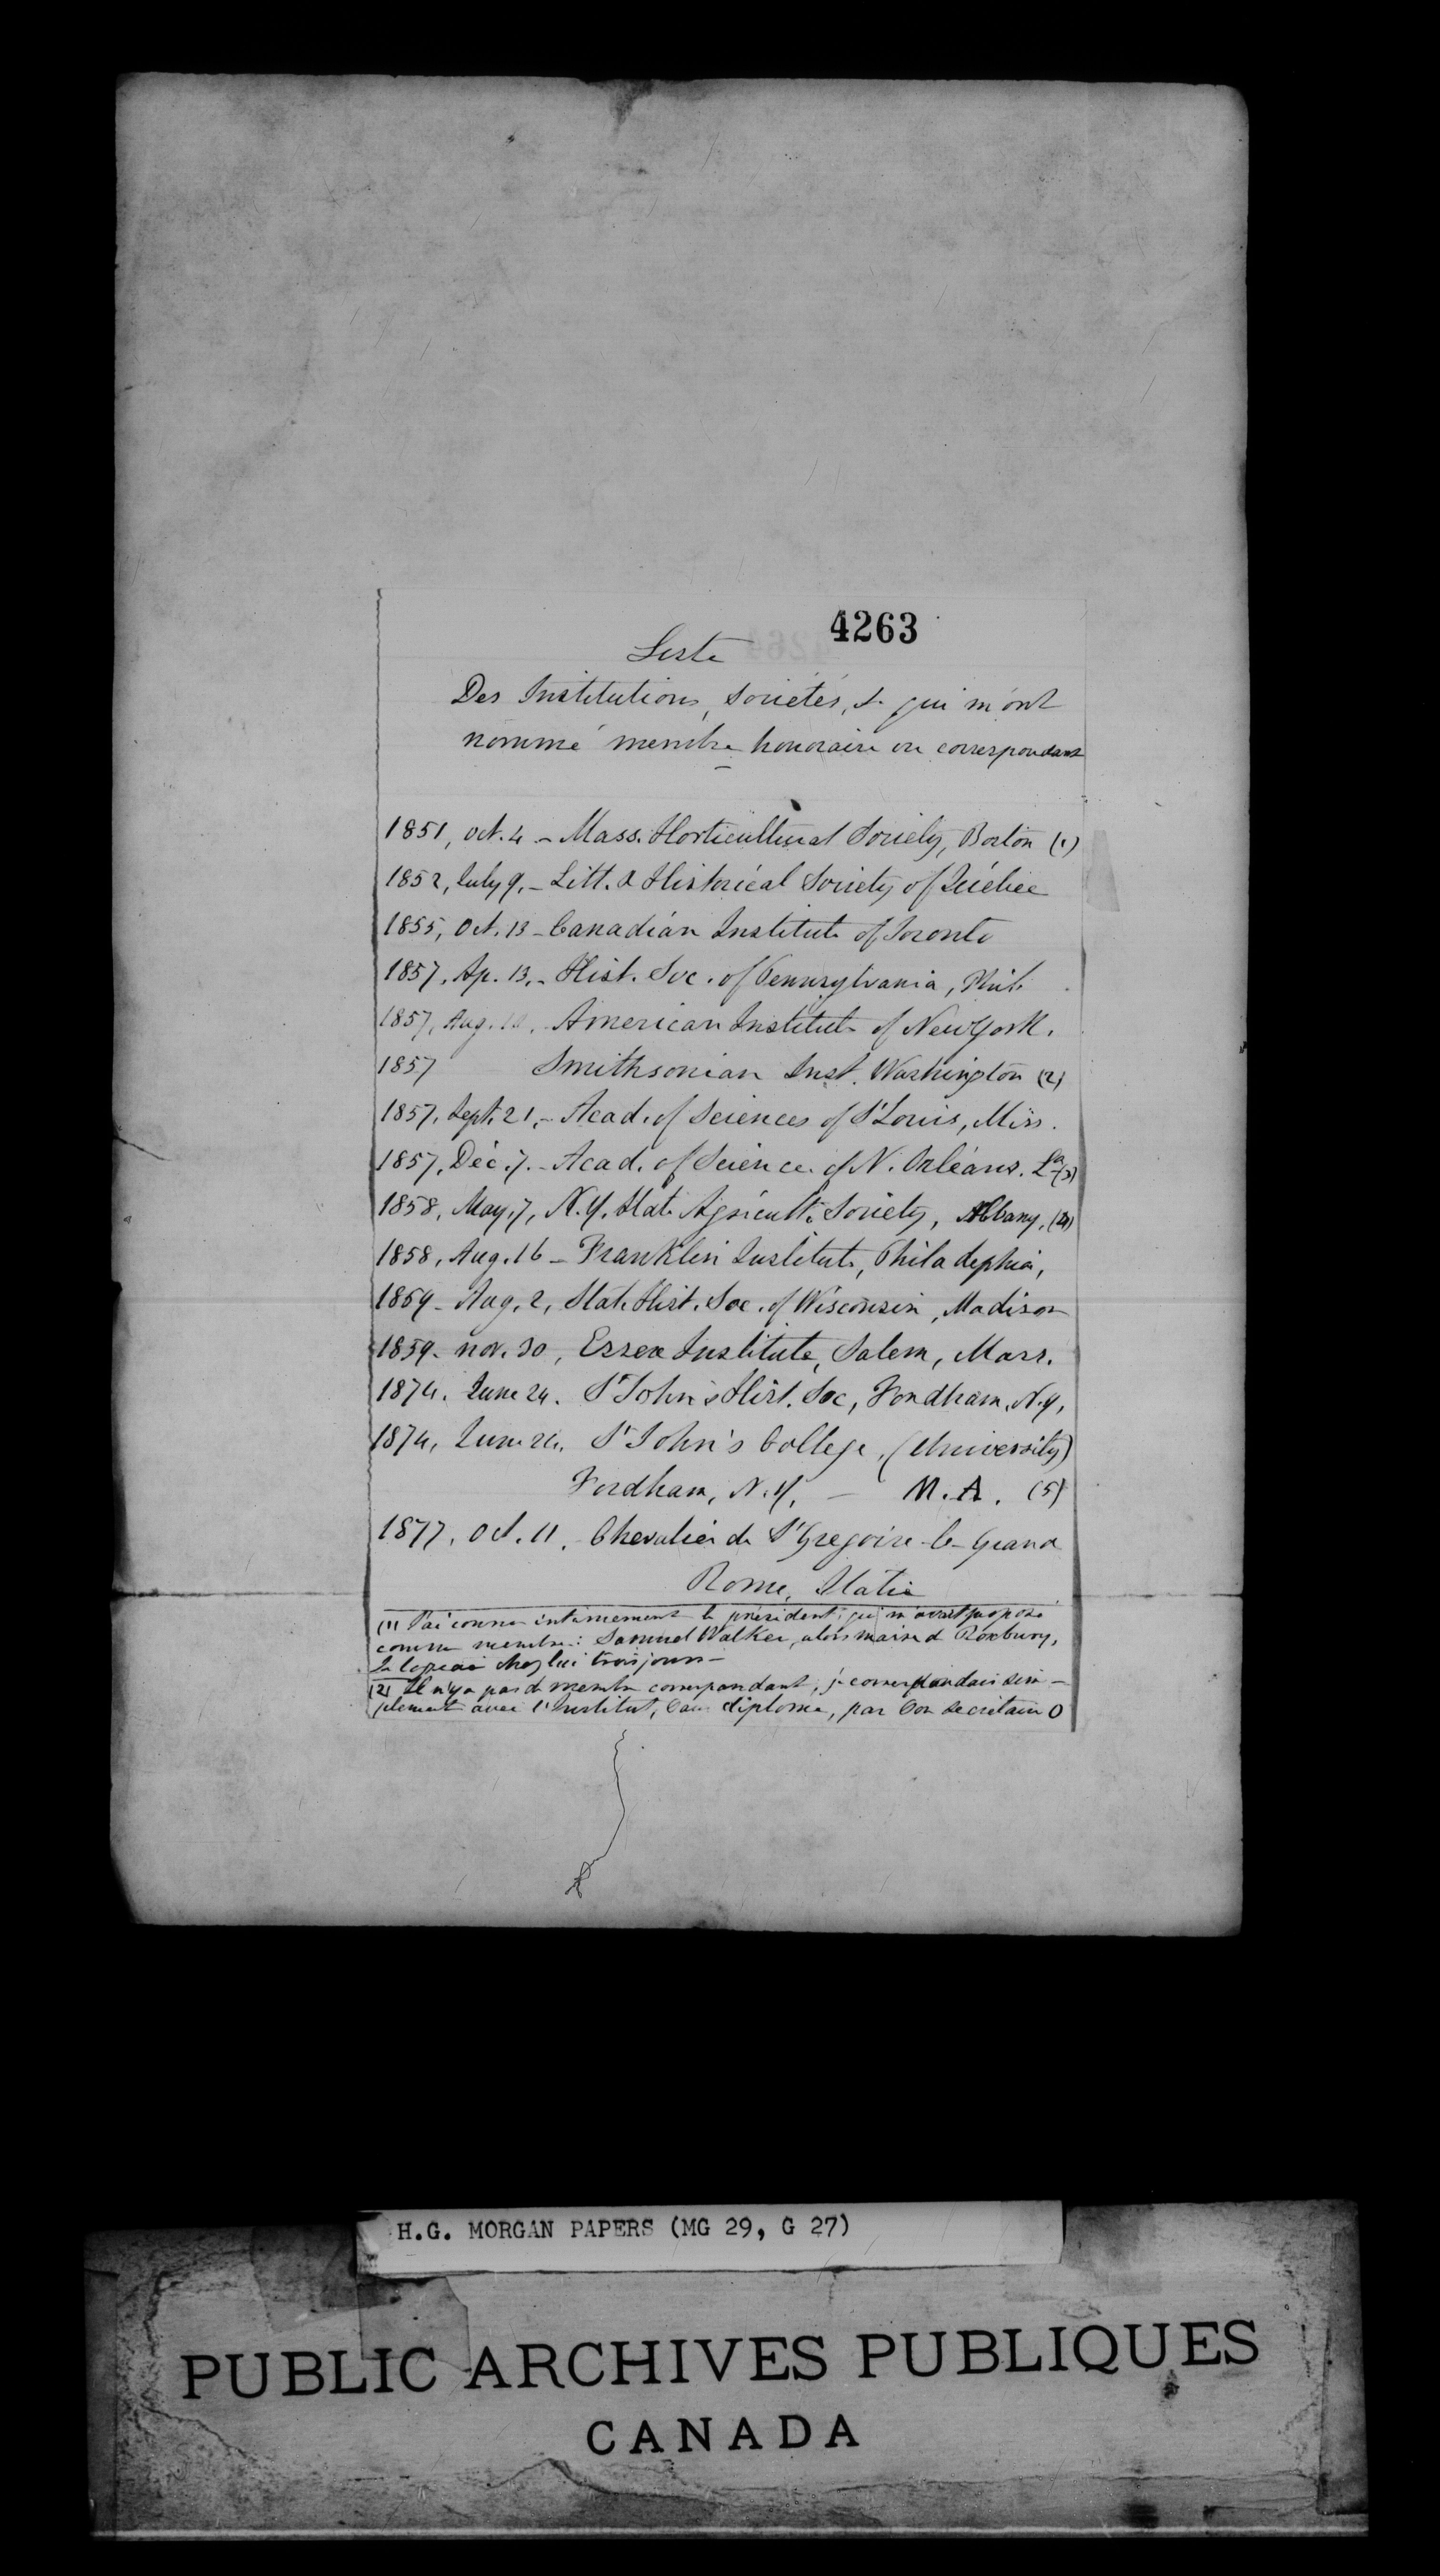 4263
Liste
Des Institutions, Sociétés, &. qui m'ont
nommé membre honoraire ou correspondant
1851, oct. 4 - Mass. Horticultural Society, Boston (1)
1852, July 9, - Litt. & Historical Society of Québec
1855, Oct. 13 - Canadian Institute of Toronto
1857, Ap. 13, - Hist. Soc. of Pennsylvania, Phil.
1857, Aug. , American Institute of New York.
1857 Smithsonian Inst. Washington (2)
1857, Sept. 21, - Acad. of Sciences of St Louis, Miss.
1857, Déc. 7. - Acad. of Science of N. Orléans. La (3)
1858, May, 7, N.Y. State Agricult. Society, Albany, (4)
1858, Aug. 16 - Franklin Institute, Philadephia,
1859 - Aug. 2, State Hist. Soc. of Wisconsin, Madison
1859 - nov. 30, Essex Institute, Salem, Mass.
1874. June 24. St John's Hist. Soc, Fordham, N.Y,
1874, June 24, St John's College, (University)
Fordham, N.Y, — M.A. (5)
1877, Oct. 11, Chevalier de St Gregoire-le-Grand
Rome, Italie
(1) J'ai connu intimement le président, qui m'avait proposé
comme membre: Samuel Walker, alors maire de Roxbury,
Je logeai chez lui trois jours -
(2) Il n'y a pas de membre correspondant, je correspondais sim-
plement avec l'Institut, sans diplome, par son secrétaire
H.G. MORGAN PAPERS (MG 29, G 27)
PUBLIC ARCHIVES PUBLIQUES
CANADA